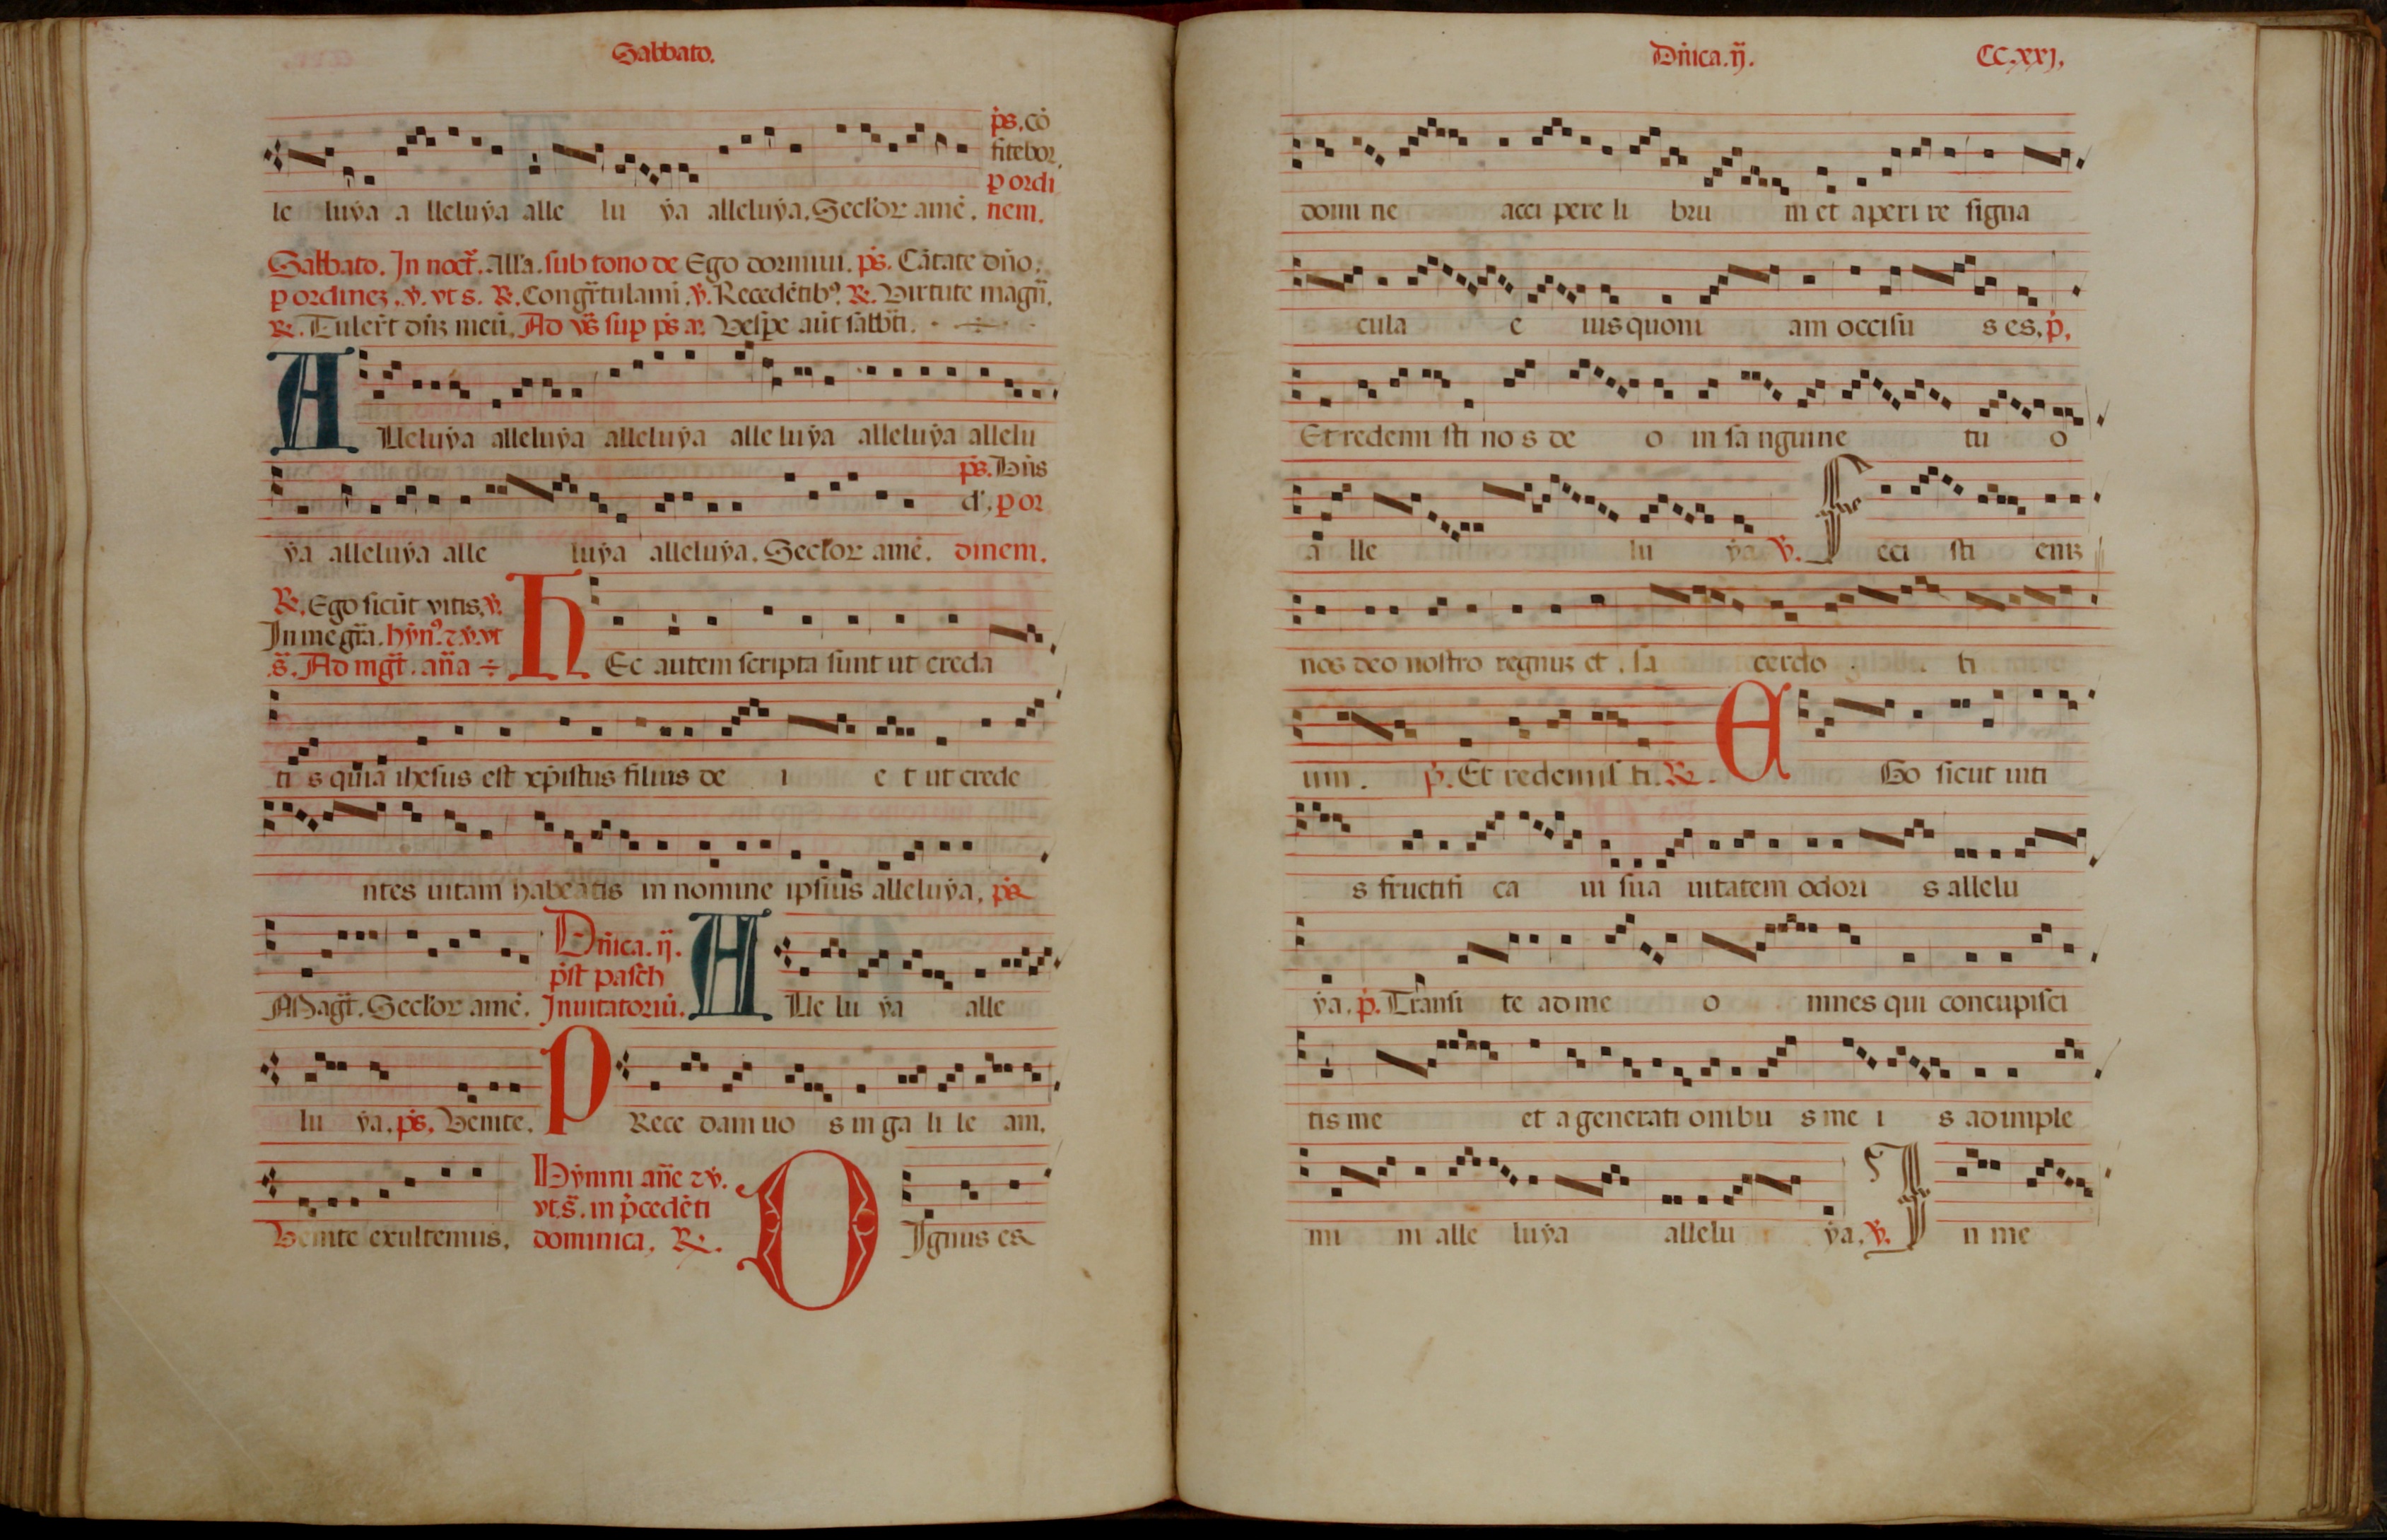 Sabbato.
p̄s. cō
fitebor.
p ordi
le luÿa a lleluÿa alle lu ÿa alleluÿa. Seclor amē. nem.
Sabbato. In noct̄. Alla. sub tono de Ego dormiui. p̄s. Cātate dn̄o.
p ordinez. v̄. vt s. R̄. Congr̄tulami. v̄. Recedētibꝰ. R̄. Virtute magn̄.
R̄. Tuler̄t dn̄z meū. Ad vs̄ sup p̄s a. Vesp̄e aūt sabb̄ti.
A
lleluÿa alleluÿa alleluÿa alle luÿa alleluÿa allelu
p̄s. Bn̄s
d'. p or
ÿa alleluÿa alle luÿa alleluÿa. Seclor amē. dinem.
R̄. Ego sicūt vitis. v̄.
In me gr̄a. hÿn̄ꝰ. ⁊ v̄. vt
s̄. Ad mgt̄. an̄a
H
Ec autem scripta sunt ut creda
ti s quia ihesus est xp̄istus filius de i e t ut crede
ntes uitam habeatis in nomine ipsius alleluÿa. p̄s
Dn̄ica. ij.
p̄st pasch
Magt̄. Seclor amē. Inuitatoriū.
A
lle lu ÿa alle
lu ÿa. p̄s. Venite.
P
Rece dam uo s in ga li le am.
Hÿmni an̄e ⁊ v̄.
vt s̄. in p̄cedēti
Venite exultemus. dominica. R̄.
D
Ignus es
Dn̄ica. ij. CC.xxj.
domi ne acci pere li bru m et aperi re signa
cula e ius quoni am occisu s es. p̄.
Et redemi sti no s de o in sa nguine tu o
a lle lu ÿa v̄. F eci sti eniz
nos deo nostro regnuz et sa cerdo ti
um. p̄. Et redemis ti. R̄. E Go sicut uiti
s fructifi ca ui sua uitatem odori s allelu
ÿa. p̄. Transi te ad me o mnes qui concupisci
tis me et a generati onibu s me i s adimple
mi ni alle luÿa allelu ÿa. v̄. I n me